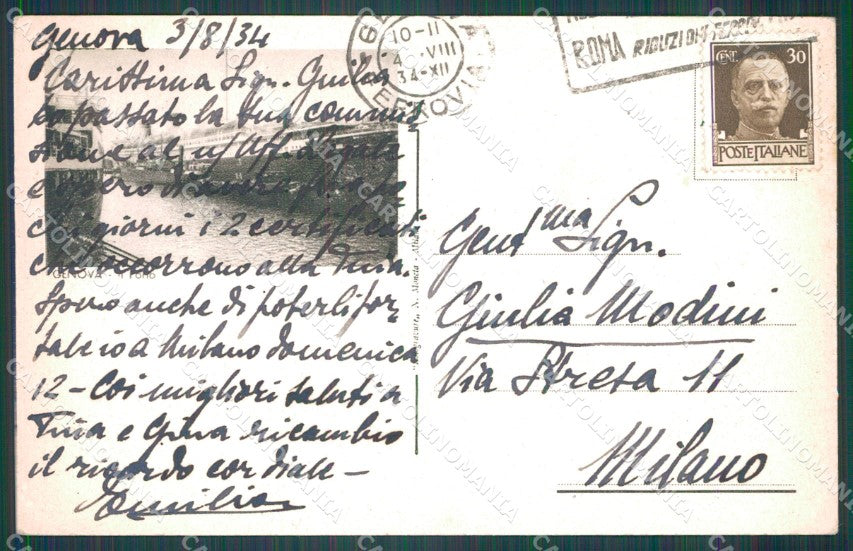 Genova 3/8/34
Carissima Sign. Giulia
ho passato la sua commis-
sione al
e spero d'avere
giorni i 2 certificati
che occorrono alla Tina.
Spero anche di poterli por-
tale io a Milano domenica
12 - Coi migliori saluti a
Tina e Gina ricambio
il ricordo cordiale -
Emilia
GENOVA -
10-11
4 VIII
34-XII
FERROVIA
ROMA RIDUZIONI FERROV
CENT. 30
POSTE ITALIANE
Gent.ma Sign.
Giulia Modini
Via Stresa 11
Milano
CARTOLINOMANIA